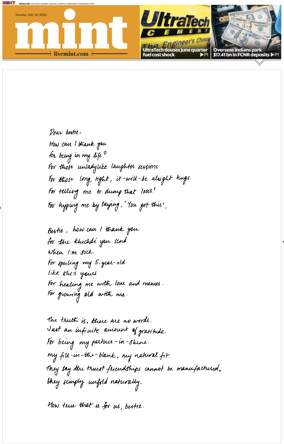 mint
Sunday, July 12, 2026
livemint.com
UltraTech
CEMENT
The Engineer's Choice
UltraTech douses June quarter
fuel cost shock
Overseas Indians park
$17.41 bn in FCNR deposits
Dear bestie.
How can I thank you
for being in my life?
For those unladylike laughter sessions
For those long, tight, it-will-be alright hugs.
For telling me to dump that loser!
For hyping me by saying, 'You got this'.
Bestie, how can I thank you
for the khichdi you send
when I'm sick.
For spoiling my 5-year-old
like she's yours
For healing me with love and memes.
For growing old with me.
The truth is, there are no words.
Just an infinite amount of gratitude.
For being my partner-in-shine.
My fill-in-the-blank, my natural fit.
They say the truest friendships cannot be manufactured,
they simply unfold naturally.
How true that is for us, bestie.